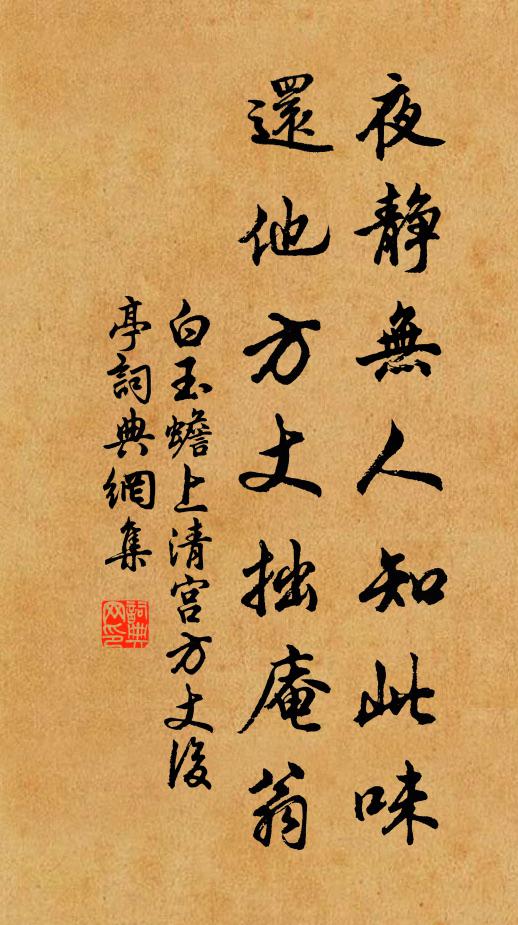 夜静無人知此味
還他方丈拙庵翁
白玉蟾上清宫方丈後
亭詞典網集
詞典
网印